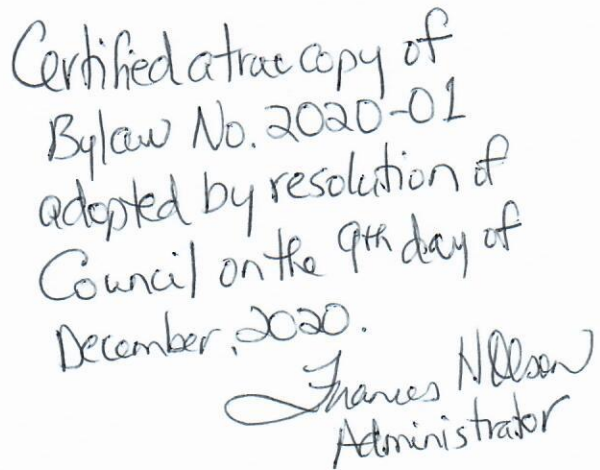 Certified a true copy of
Bylaw No. 2020-01
adopted by resolution of
Council on the 9th day of
December, 2020.
Frances N Olson
Administrator